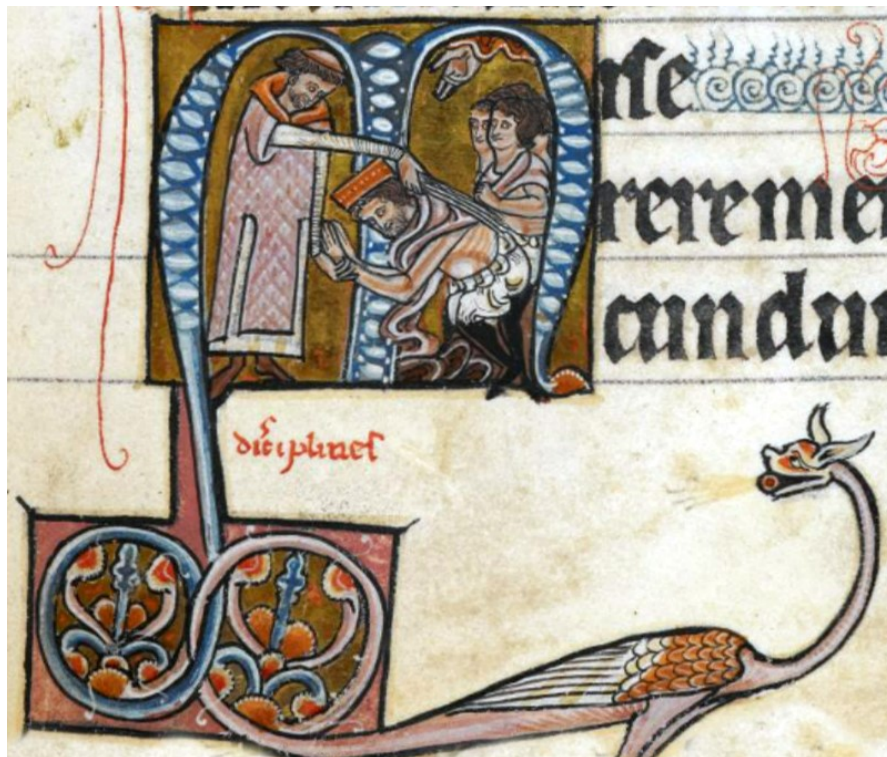 Miſe
rere mei
cundum
diſciplineſ